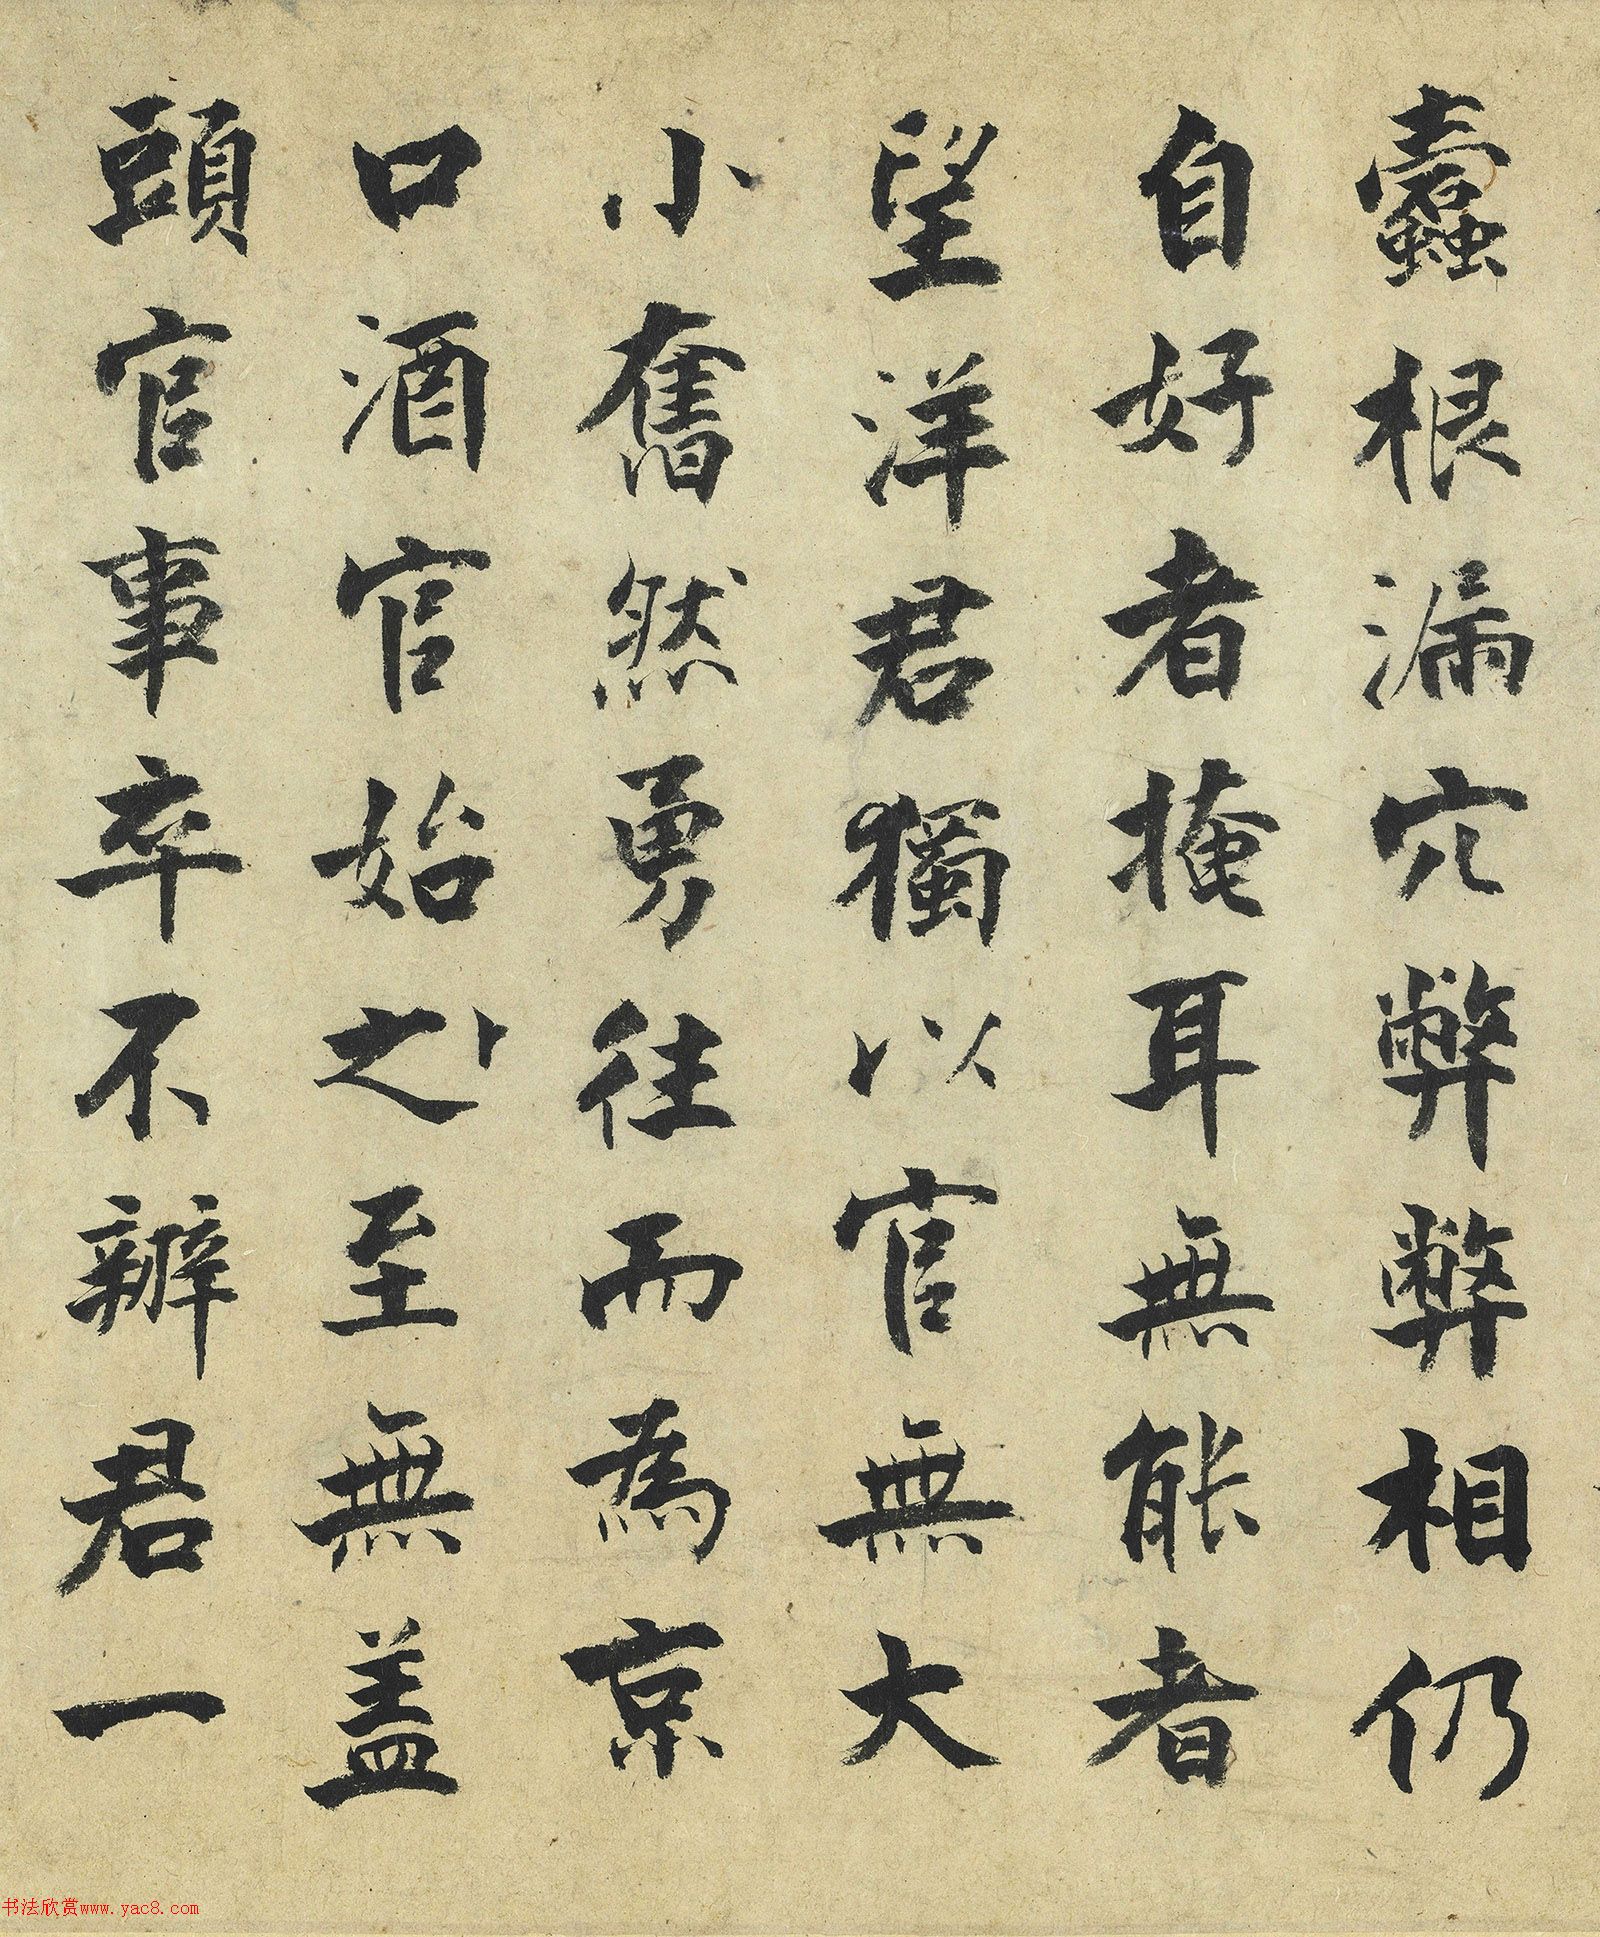 蠹根漏穴弊弊相仍
自好者掩耳無能者
望洋君獨以官無大
小奮然勇往而為京
口酒官始之卜至無盖
頭官事卒不辦君一
书法欣赏www.yac8.com